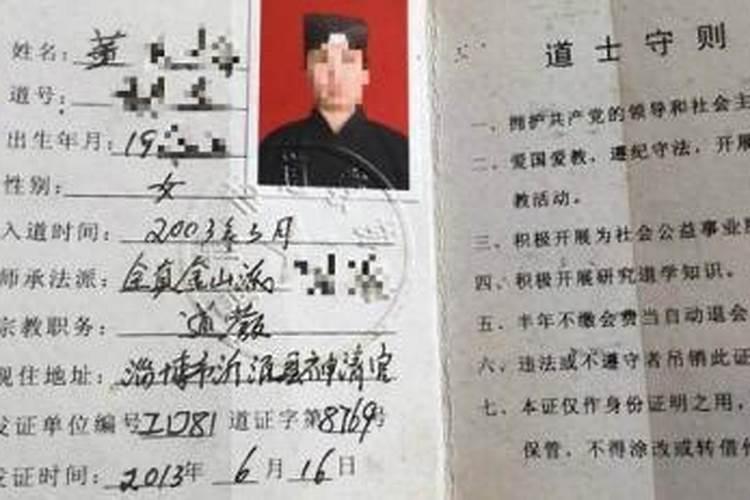 姓名：董
道号：
出生年月：19
性别：女
入道时间：2003年5月
师承法派：全真金山派
宗教职务：道教
现住地址：淄博市沂源县神清宫
发证单位编号ZD81 道证字第8769号
发证时间：2013年 6月 16日
道士守则
一、拥护共产党的领导和社会主
二、爱国爱教、遵纪守法，开展
教活动。
三、积极开展为社会公益事业服
四、积极开展研究道学知识。
五、半年不缴会费当自动退会
六、违法或不遵守者吊销此证
七、本证仅作身份证明之用，
保管，不得涂改或转借他